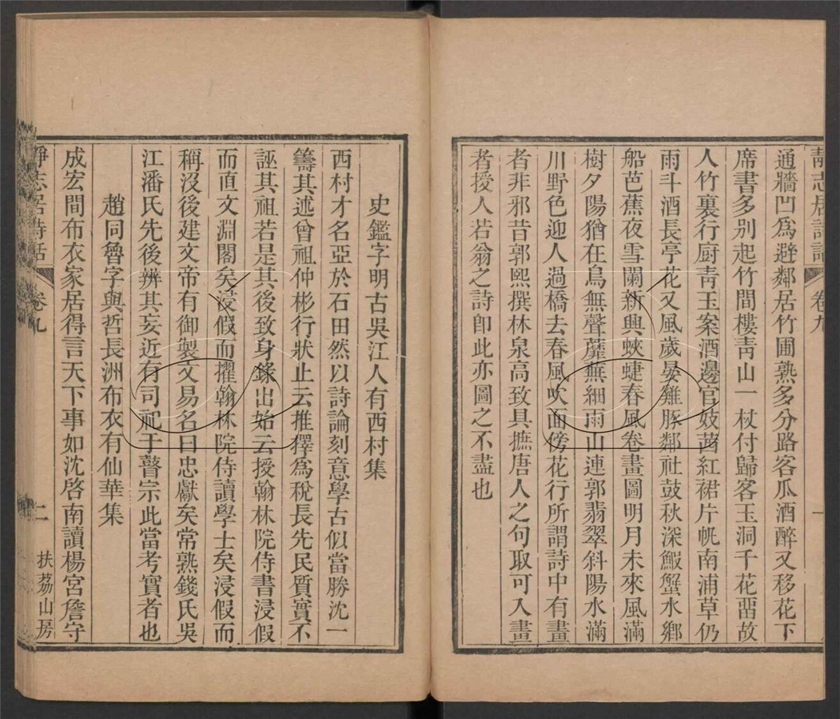 靜志居詩話 卷九 一
通牆凹爲避鄰居竹圃熟多分路客瓜酒醉又移花下
席書多别起竹間樓靑山一杖付歸客玉洞千花畱故
人竹裏行厨靑玉案酒邊官妓茜紅裙片帆南浦草仍
雨斗酒長亭花又風歲晏雞豚鄰社鼓秋深鰕蟹水鄉
船芭蕉夜雪闌新興蛺蜨春風卷畫圖明月未來風滿
樹夕陽猶在鳥無聲蘼蕪細雨山連郭翡翠斜陽水滿
川野色迎人過橋去春風吹面傍花行所謂詩中有畫
者非邪昔郭熙撰林泉高致具摭唐人之句取可入畫
者授人若翁之詩卽此亦圖之不盡也
史鑑字明古吳江人有西村集
西村才名亞於石田然以詩論刻意學古似當勝沈一
籌其述曾祖仲彬行狀止云推擇爲稅長先民質實不
誣其祖若是其後致身錄出始云授翰林院侍書浸假
而直文淵閣矣浸假而擢翰林院侍讀學士矣浸假而
稱沒後建文帝有御製文易名曰忠獻矣常熟錢氏吳
江潘氏先後辨其妄近有司祀于瞽宗此當考實者也
趙同魯字與哲長洲布衣有仙華集
成宏間布衣家居得言天下事如沈啓南讀楊宮詹守
靜志居詩話 卷九 二 扶荔山房